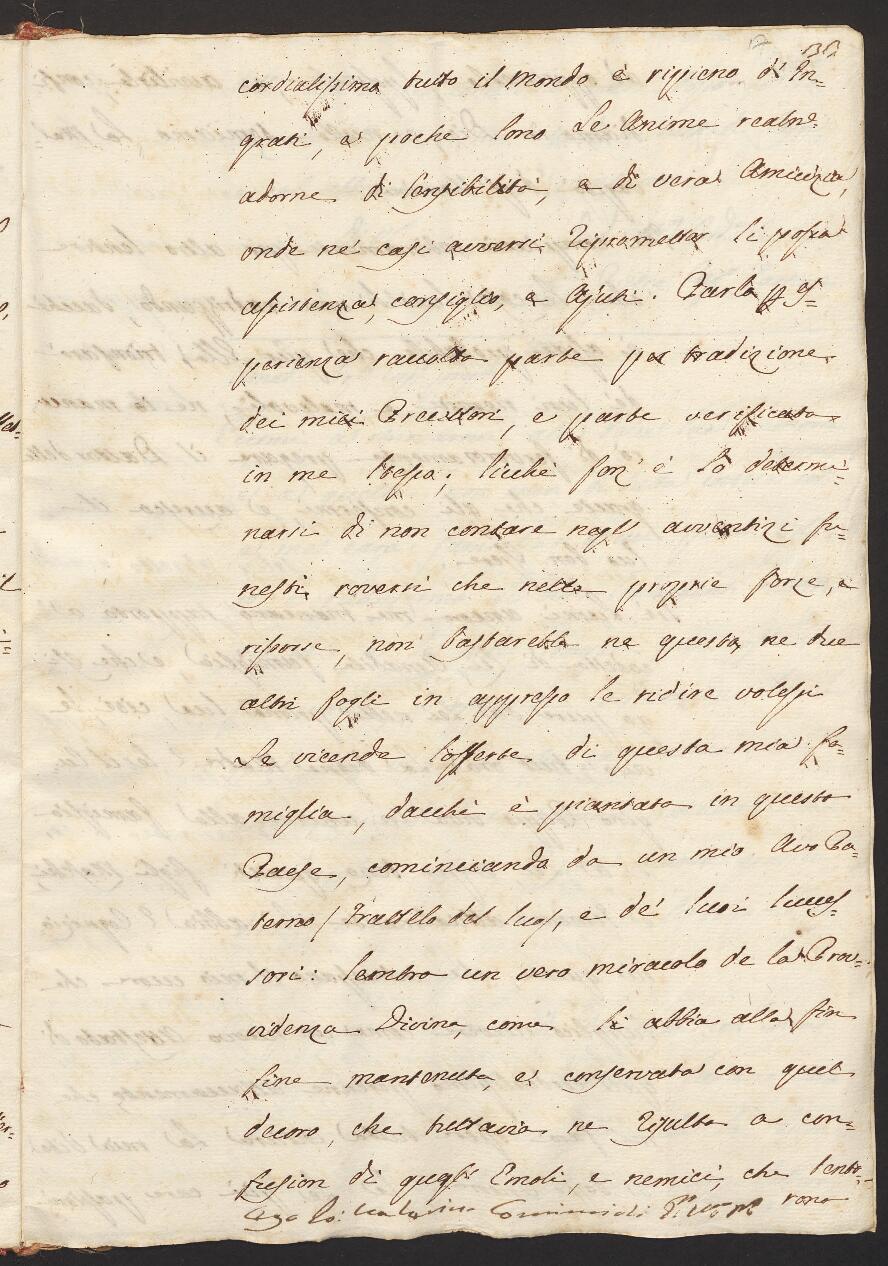 cordialissima tutto il Mondo è ripieno d'In=
grati, e poche sono Le Anime realm.e
adorne di sensibilità, e di vera Amicizia,
onde ne' casi avversi ripromettar si possa
assistenza, consiglio, e Ajuti. Parlo p es=
perienza raccolta parte per tradizione
dei miei Precettori, e parte verificata
in me stesso; sicchè forz' è lo determi=
narsi di non contare negl' avventizi fu=
nesti roversi che nelle proprie forze, e
risorse, non bastarebbe ne questo, ne due
altri fogli in appresso se ridire volessi
Le vicende sofferte di questa mia fa=
miglia, dacchè è piantata in questo
Paese, cominciando da un mio Avo Pa=
terno / Fratello del suo /, e de' suoi succes=
sori: sembra un vero miracolo de la Prov=
videnza Divina, come li abbia alla fin
fine mantenuta, e conservata con quel
decoro, che tuttavia ne risulta a con=
fusion di quegli Emoli, e nemici, che tenta=
rono